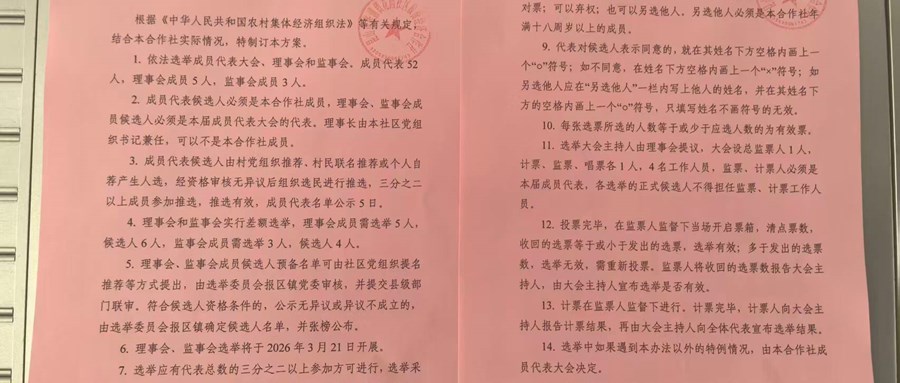 根据《中华人民共和国农村集体经济组织法》等有关规定,
结合本合作社实际情况，特制订本方案。
1. 依法选举成员代表大会、理事会和监事会。成员代表 52
人，理事会成员 5 人，监事会成员 3 人。
2. 成员代表候选人必须是本合作社成员，理事会、监事会成
员候选人必须是本届成员代表大会的代表。理事长由本社区党组
织书记兼任，可以不是本合作社成员。
3. 成员代表候选人由村党组织推荐、村民联名推荐或个人自
荐产生人选，经资格审核无异议后组织选民进行推选，三分之二
以上成员参加推选，推选有效，成员代表名单公示 5 日。
4. 理事会和监事会实行差额选举，理事会成员需选举 5 人，
候选人 6 人，监事会成员需选举 3 人，候选人 4 人。
5. 理事会、监事会成员候选人预备名单可由社区党组织提名
推荐等方式提出，由选举委员会报区镇党委审核，并提交县级部
门联审。符合候选人资格条件的，公示无异议或异议不成立的，
由选举委员会报区镇确定候选人名单，并张榜公布。
6. 理事会、监事会选举将于 2026 年 3 月 21 日开展。
7. 选举应有代表总数的三分之二以上参加方可进行，选举采
对票；可以弃权；也可以另选他人。另选他人必须是本合作社年
满十八周岁以上的成员。
9. 代表对候选人表示同意的，就在其姓名下方空格内画上一
个“○”符号；如不同意，在姓名下方空格内画上一个“×”符号；如
另选他人应在“另选他人”一栏内写上他人的姓名，并在其姓名下
方的空格内画上一个“○”符号，只填写姓名不画符号的无效。
10. 每张选票所选的人数等于或少于应选人数的为有效票。
11. 选举大会主持人由理事会提议，大会设总监票人 1 人，
计票、监票、唱票各 1 人，4 名工作人员，监票、计票人必须是
本届成员代表，各选举的正式候选人不得担任监票、计票工作人
员。
12. 投票完毕，在监票人监督下当场开启票箱，清点票数，
收回的选票等于或小于发出的选票，选举有效；多于发出的选票
数，选举无效，需重新投票。监票人将收回的选票数报告大会主
持人，由大会主持人宣布选举是否有效。
13. 计票在监票人监督下进行。计票完毕，计票人向大会主
持人报告计票结果，再由大会主持人向全体代表宣布选举结果。
14. 选举中如果遇到本办法以外的特例情况，由本合作社成
员代表大会决定。